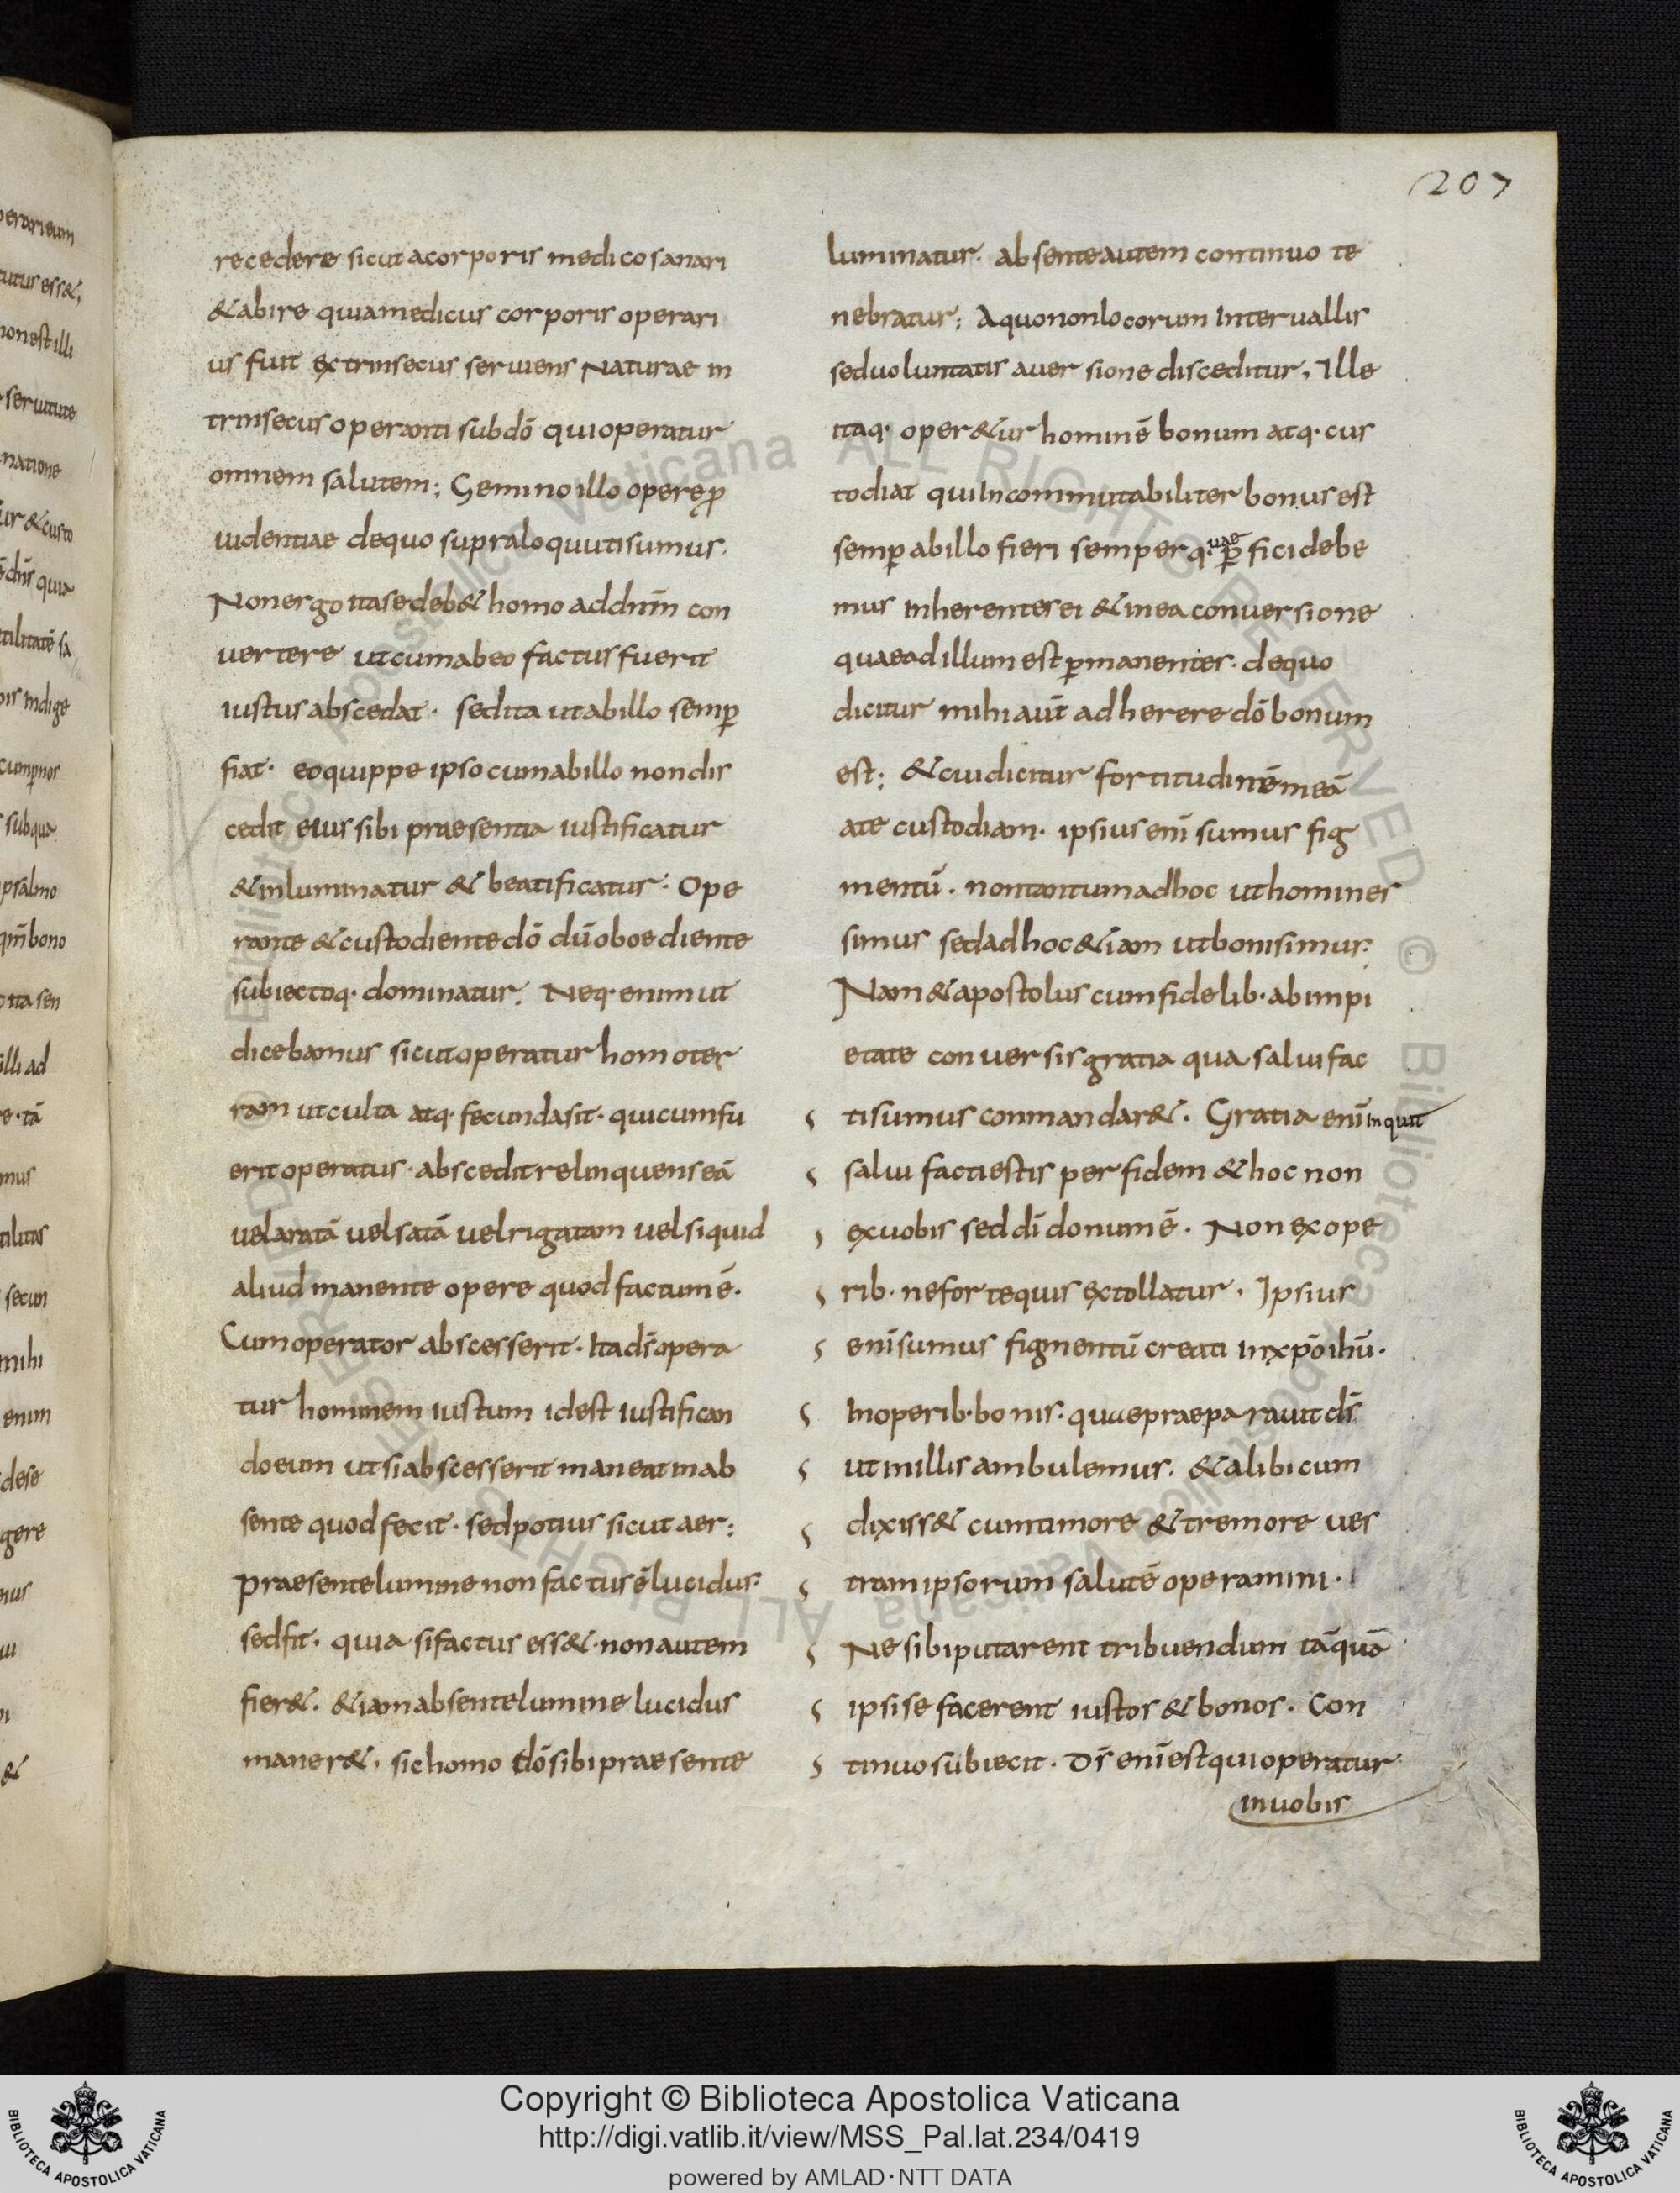 207
recedere sicut a corporis medico sanari
& abire quia medicus corporis operari
us fuit extrinsecus seruiens Naturae in
trinsecus operanti sub dō qui operatur
omnem salutem; Gemino illo opere ꝓ
uidentiae de quo supra loquuti sumus.
Non ergo ita se deb& homo ad dnm̄ con
uertere ut cum ab eo factus fuerit
iustus abscedat. sed ita ut ab illo semꝑ
fiat. eo quippe ipso cum ab illo non dis
cedit eius sibi praesentia iustificatur
& inluminatur & beatificatur. Ope
rante & custodiente dō dū oboediente
subiectoq· dominatur. Neq· enim ut
dicebamus sicut operatur homo ter
ram ut culta atq· fecunda sit. qui cum fu
erit operatus. abscedit relinquens eā
uel aratā uel satā uel rigatam uel si quid
aliud manente opere quod factum ē.
Cum operator abscesserit. Ita ds̄ opera
tur hominem iustum id est iustifican
do eum ut si abscesserit maneat in ab
sente quod fecit. sed potius sicut aer;
praesente lumine non factus ē lucidus.
sed fit. quia si factus ess&. non autem
fier&. &iam absente lumine lucidus
maner&. sic homo dō sibi praesente
luminatur. absente autem continuo te
nebratur; A quo non locorum Interuallis
sed uoluntatis auersione disceditur. Ille
itaq· oper&ur hominē bonum atq· cus
todiat qui Incommutabiliter bonus est
semꝑ ab illo fieri semperq· uae ꝑfici debe
mus inherentes ei & in ea conuersione
quae ad illum est ꝑmanentes. de quo
dicitur mihi aut̄ adherere dō bonum
est; & cui dicitur fortitudinē meā
a te custodiam. ipsius enī sumus fig
mentū. non tantum ad hoc ut homines
simus sed ad hoc &iam ut boni simus;
Nam & apostolus cum fidelib· ab impi
etate conuersis gratia qua salui fac
ti sumus conmandar&. Gratia enī inquit
salui facti estis per fidem & hoc non
ex uobis sed dī donum ē. Non ex ope
rib· ne forte quis extollatur. Ipsius
enī sumus figmentū creati in xpō ihū.
In operib· bonis. quae praeparauit ds̄
ut in illis ambulemus. & alibi cum
dixiss& cum timore & tremore ues
tram ipsorum salutē operamini.
Ne sibi putarent tribuendum tāquā
ipsi se facerent iustos & bonos. Con
tinuo subiecit. Ds̄ enī est qui operatur
in uobis
Copyright © Biblioteca Apostolica Vaticana
http://digi.vatlib.it/view/MSS_Pal.lat.234/0419
powered by AMLAD·NTT DATA